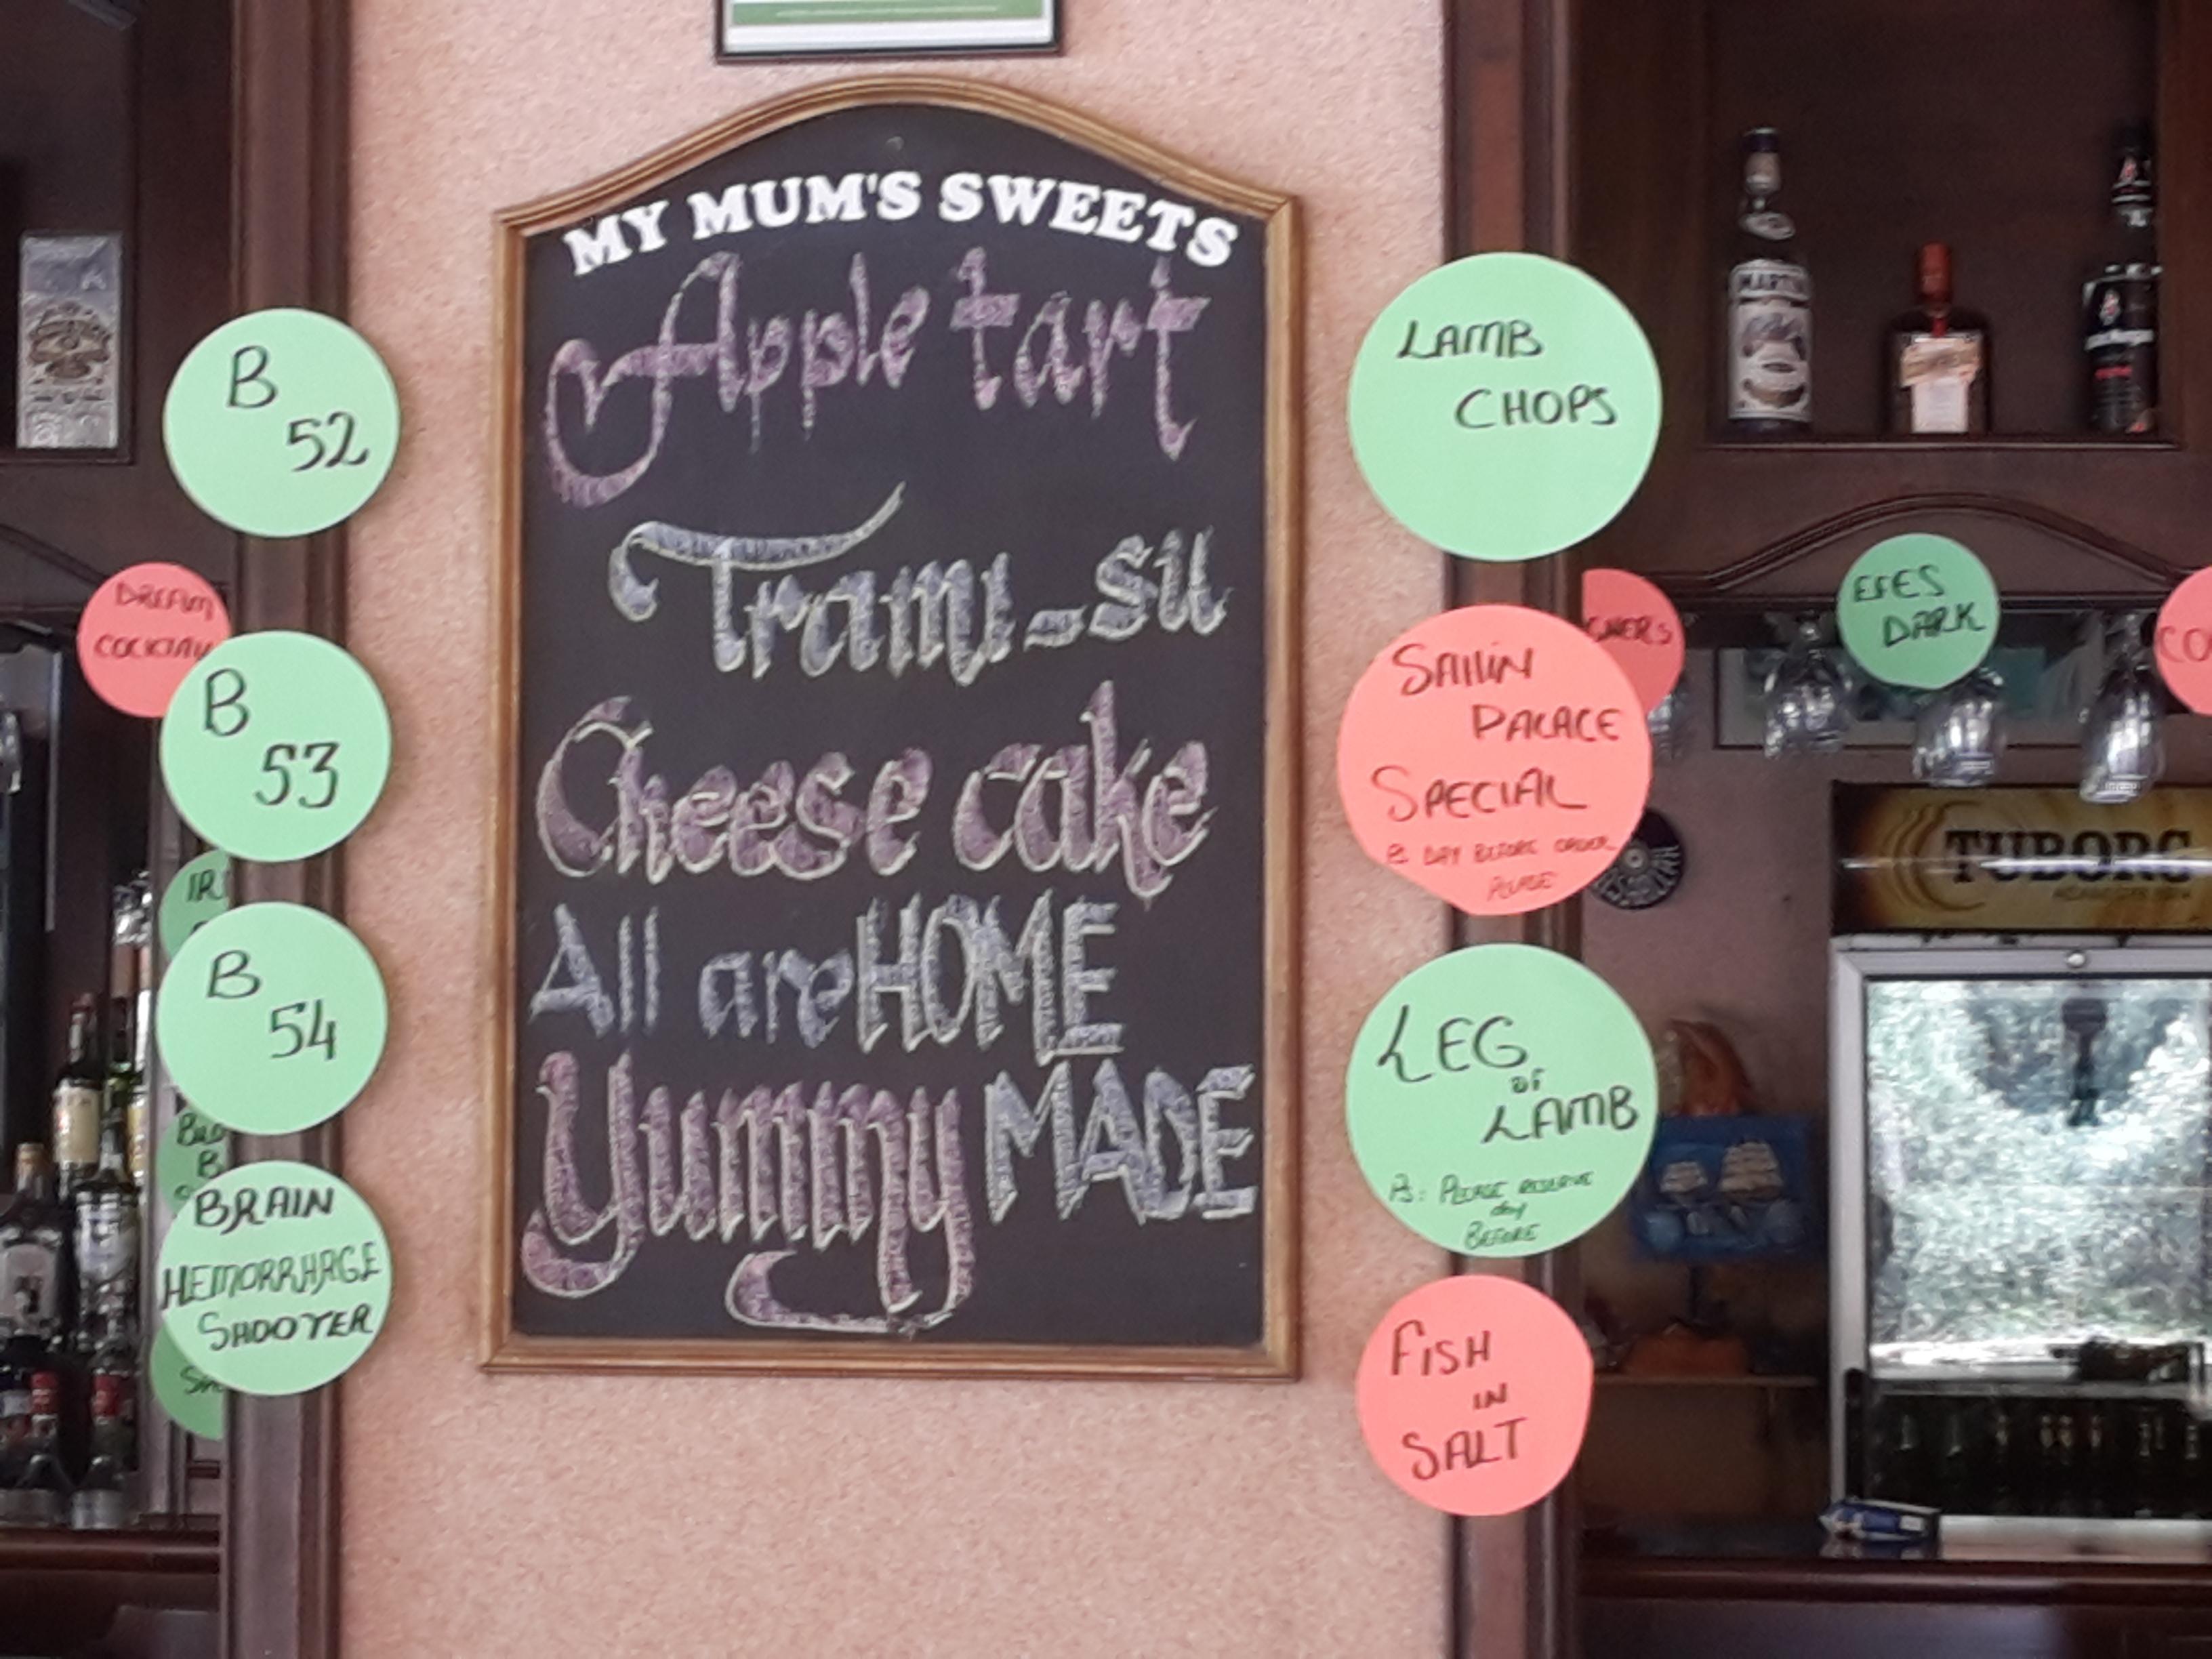 MY MUM'S SWEETS
Apple tart
Trami-su
Cheese cake
All are HOME
Yummy MADE
B
52
DREAM
COCKTAIL
B
53
B
54
BRAIN
HEMORRHAGE
SHOOTER
LAMB
CHOPS
SAILIN
PALACE
SPECIAL
DAY BEFORE ORDER
PLEASE
LEG
OF
LAMB
PS: PLEASE RESERVE
day
BEFORE
FISH
IN
SALT
EFES
DARK
CO
MARTINI
TUBORG